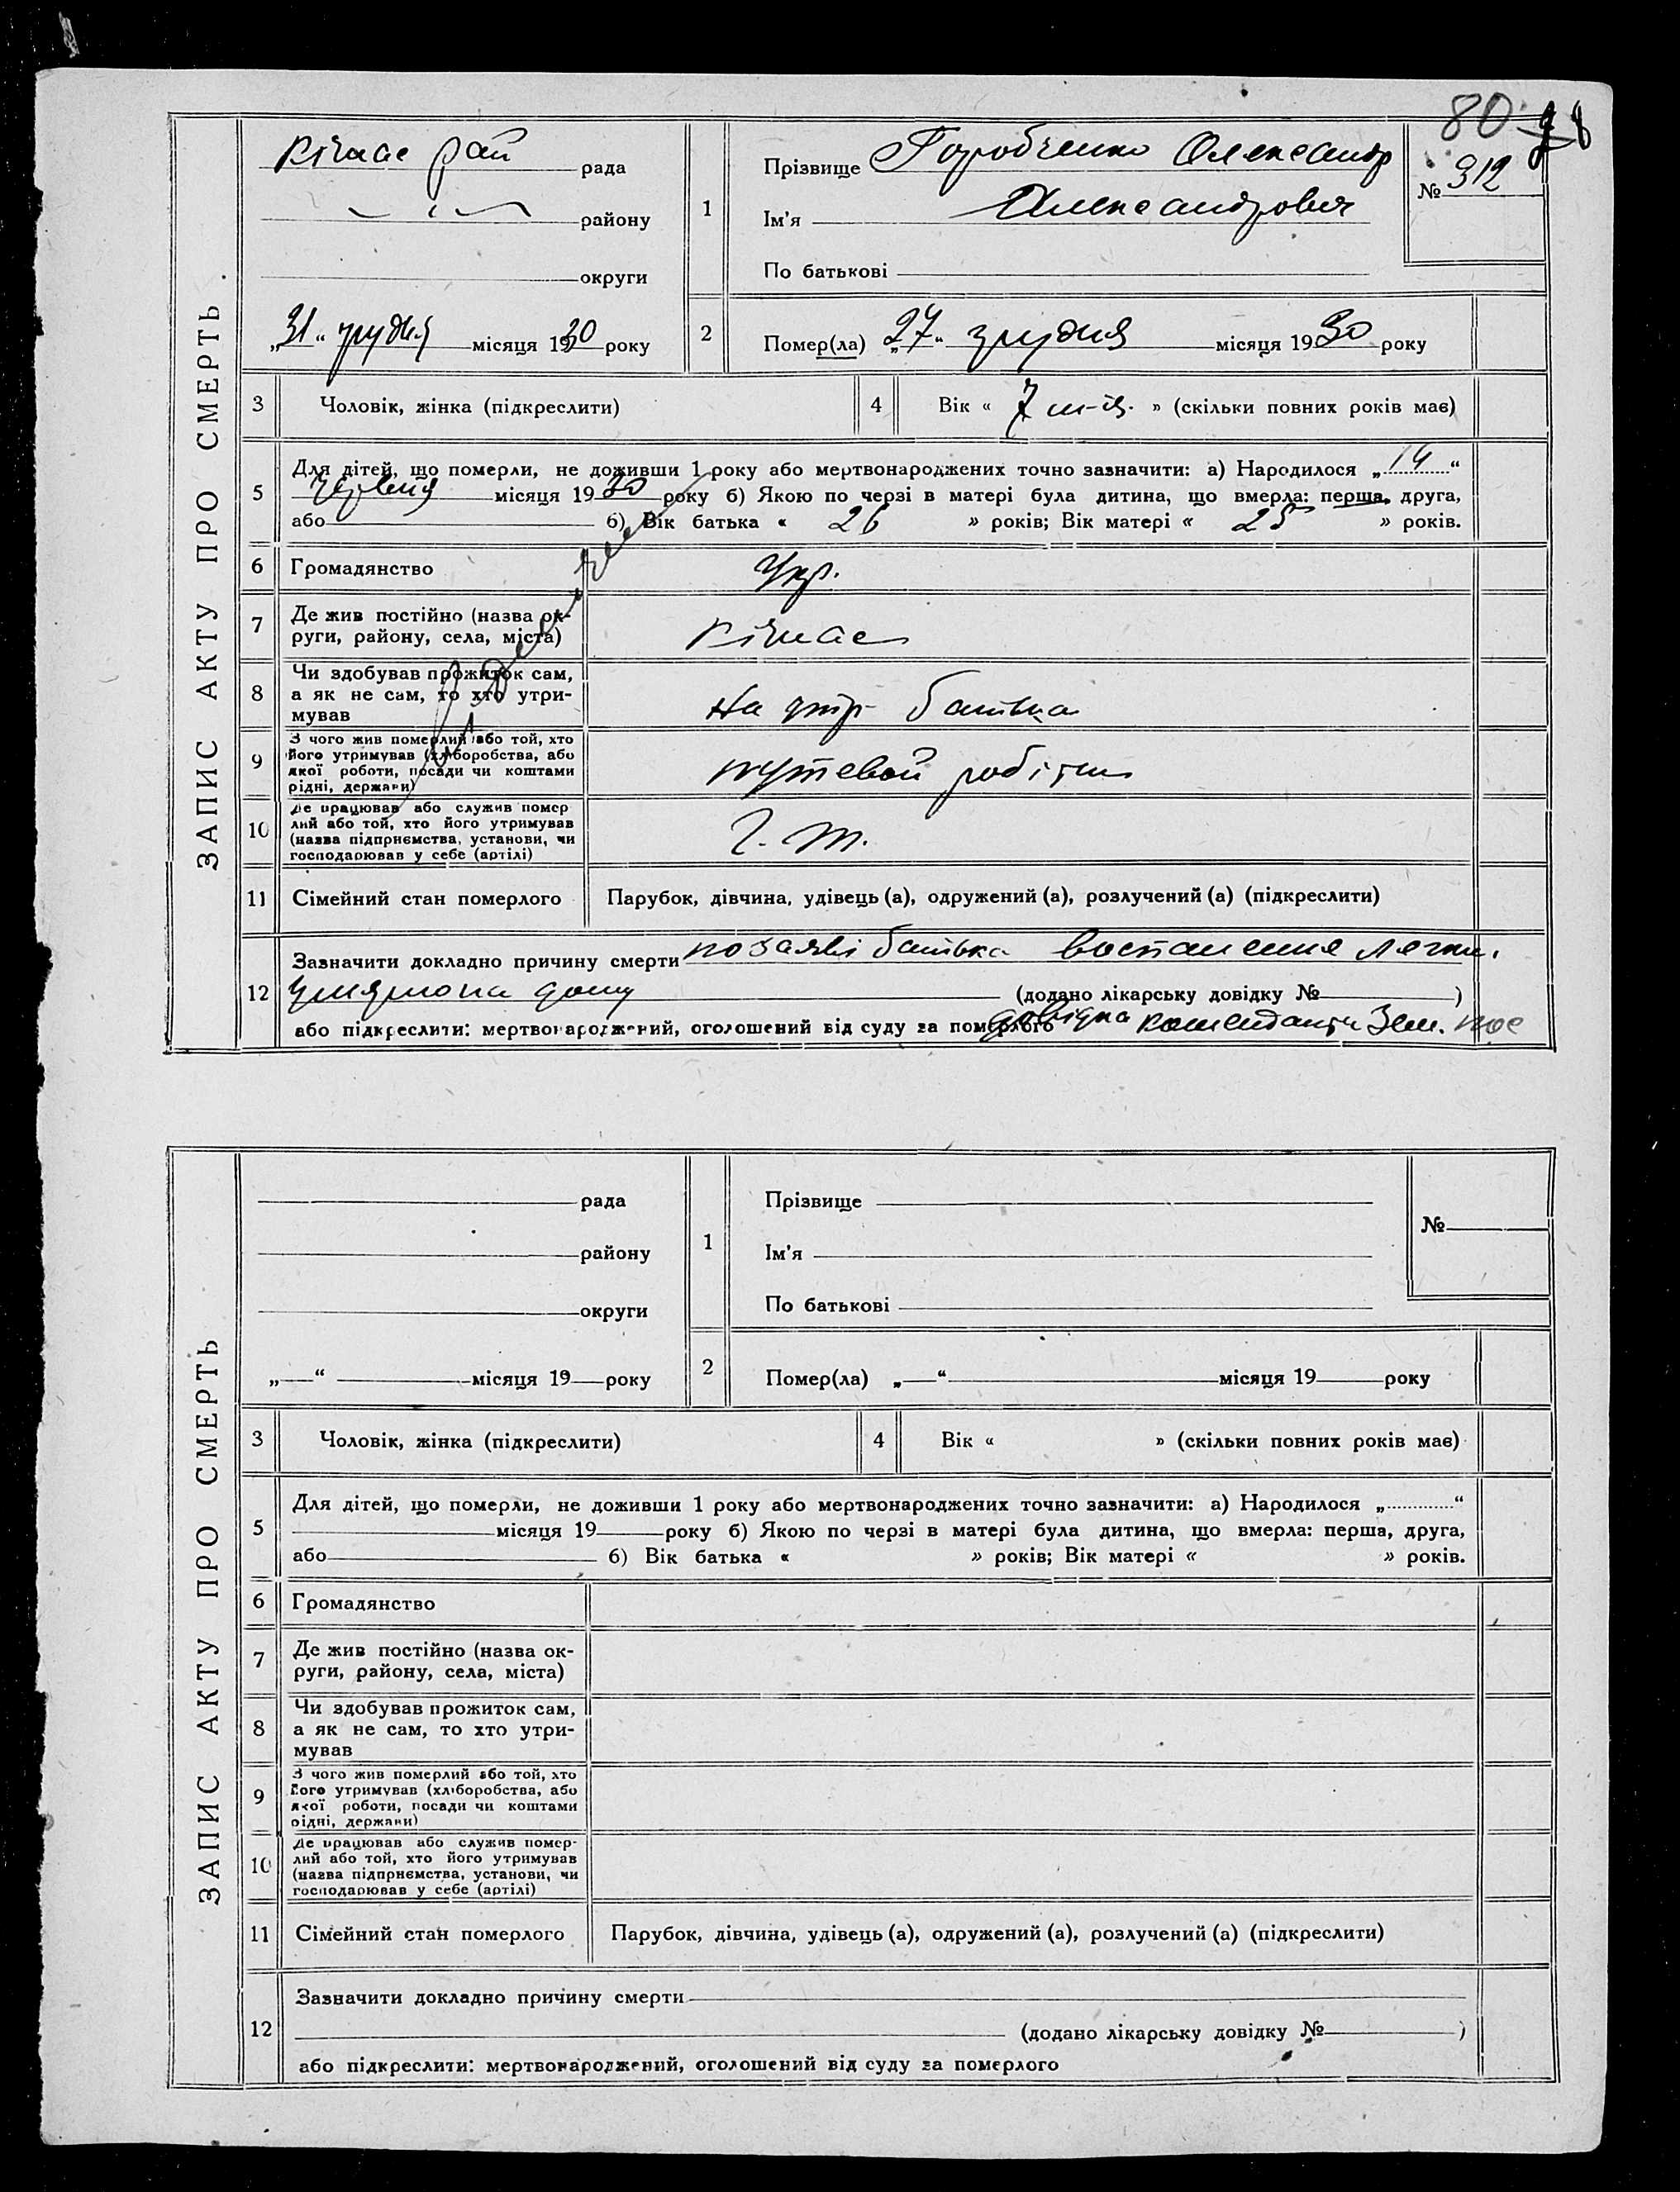 80
ЗАПИС АКТУ ПРО СМЕРТЬ
Кічкас рай рада
району
округи
„31“ грудня місяця 1930 року
1
Прізвище Горобченко Олександр
Ім'я Олександрович
По батькові
№ 312
2
Помер(ла) „27“ грудня місяця 1930 року
3 Чоловік, жінка (підкреслити)
4 Вік « 7 м-ів. » (скільки повних років має)
5 Для дітей, що померли, не доживши 1 року або мертвонароджених точно зазначити: а) Народилося „14“
червня місяця 1930 року б) Якою по черзі в матері була дитина, що вмерла: перша, друга,
або б) Вік батька « 26 » років; Вік матері « 25 » років.
6 Громадянство Укр.
7 Де жив постійно (назва ок-
руги, району, села, міста) Кічкас
8 Чи здобував прожиток сам,
а як не сам, то хто утри-
мував На утр батька
9 З чого жив померлий або той, хто
його утримував (хліборобства, або
якої роботи, посади чи коштами
рідні, держави) путевой робітник
10 Де працював або служив помер
лий або той, хто його утримував
(назва підприємства, установи, чи
господарював у себе (артілі)
11 Сімейний стан померлого Парубок, дівчина, удівець (а), одружений (а), розлучений (а) (підкреслити)
12 Зазначити докладно причину смерти по заяві батька воспаление легких.
дому (додано лікарську довідку № )
або підкреслити: мертвонароджений, оголошений від суду за померлого довідка коменданта Зем. пос
ЗАПИС АКТУ ПРО СМЕРТЬ
рада
району
округи
„ “ місяця 19 року
1
Прізвище
Ім'я
По батькові
№
2
Помер(ла) „ “ місяця 19 року
3 Чоловік, жінка (підкреслити)
4 Вік « » (скільки повних років має)
5 Для дітей, що померли, не доживши 1 року або мертвонароджених точно зазначити: а) Народилося „ “
місяця 19 року б) Якою по черзі в матері була дитина, що вмерла: перша, друга,
або б) Вік батька « » років; Вік матері « » років.
6 Громадянство
7 Де жив постійно (назва ок-
руги, району, села, міста)
8 Чи здобував прожиток сам,
а як не сам, то хто утри-
мував
9 З чого жив померлий або той, хто
його утримував (хліборобства, або
якої роботи, посади чи коштами
рідні, держави)
10 Де працював або служив помер-
лий або той, хто його утримував
(назва підприємства, установи, чи
господарював у себе (артілі)
11 Сімейний стан померлого Парубок, дівчина, удівець (а), одружений (а), розлучений (а) (підкреслити)
12 Зазначити докладно причину смерти
(додано лікарську довідку № )
або підкреслити: мертвонароджений, оголошений від суду за померлого